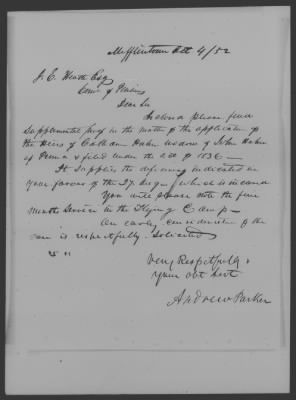 Mifflintown Oct 4/52
J. E. Heath Esq
Comr of Pensions
Dear Sir
Inclosed please find
supplemental proof in the matter of the application of
the Heirs of Catharine Hahn widow of John Hahn
of Penna & filed under the act of 1836 —
It supplies the deficiency indicated in
your favour of the 27. August which is inclosed
You will please note the five
months service in the Flying Camp —
An early consideration of the
case is respectfully solicited
Very Respectfully
your obt servt
Andrew Parker